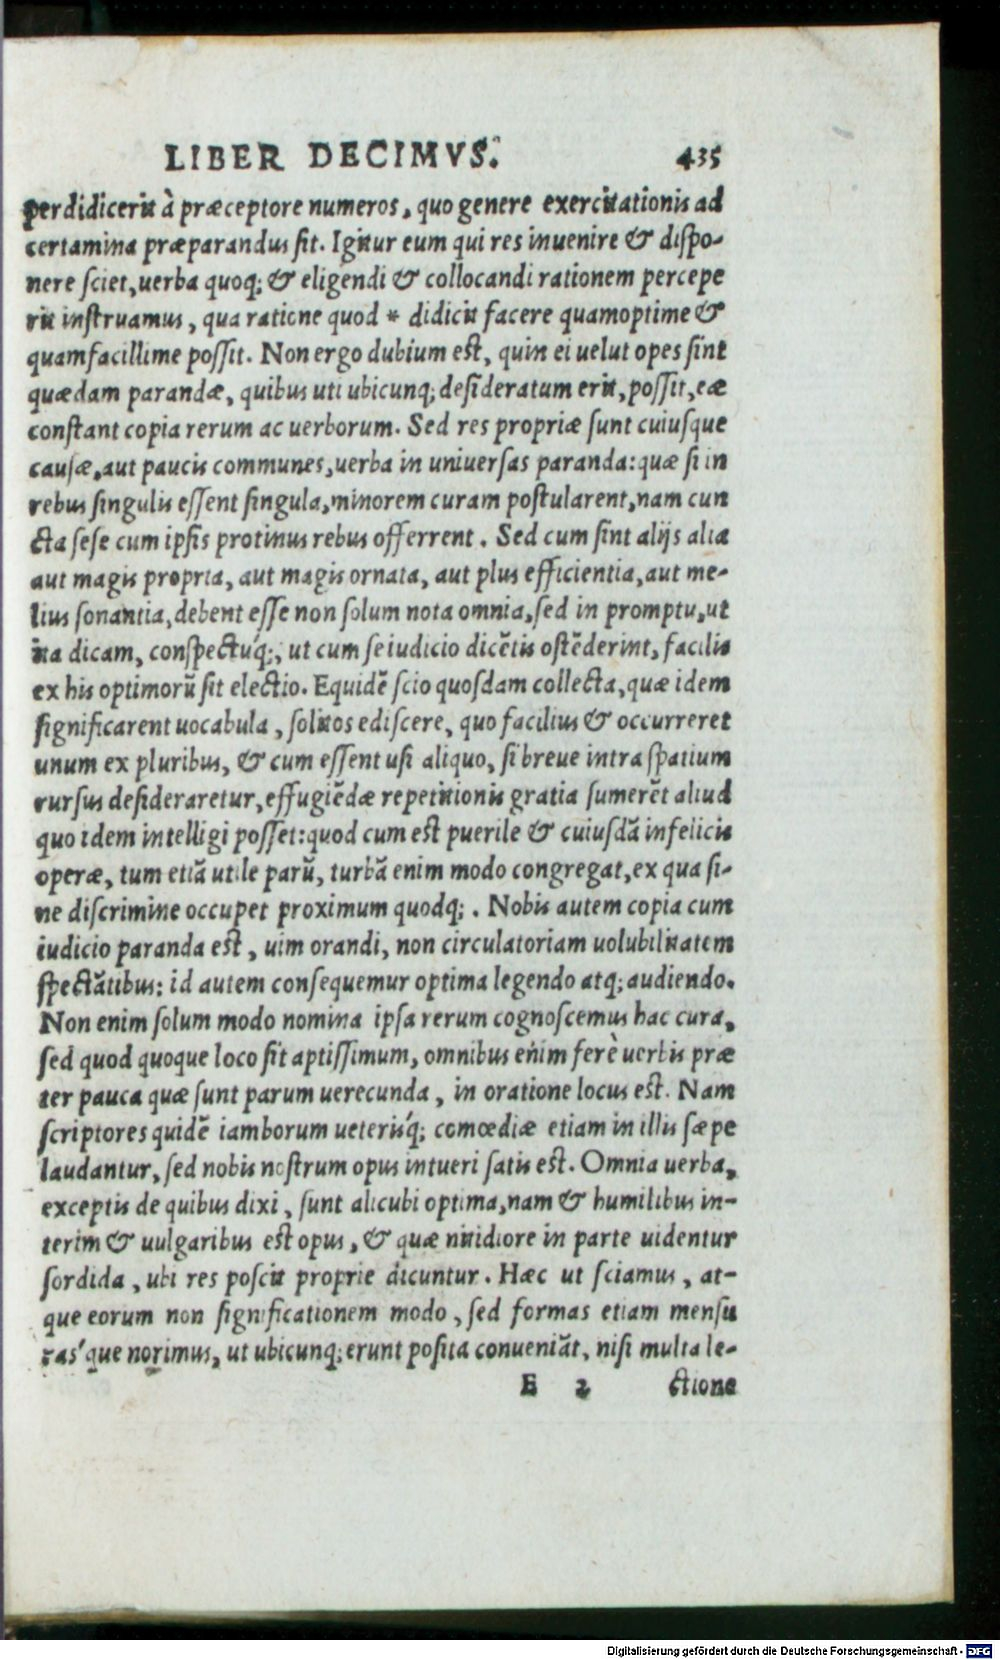 LIBER DECIMVS. 435
perdidicerit à præceptore numeros, quo genere exercitationis ad
certamina præparandus sit. Igitur eum qui res inuenire & dispo-
nere sciet, uerba quoq; & eligendi & collocandi rationem percepe
rit instruamus, qua ratione quod * didicit facere quamoptime &
quamfacillime possit. Non ergo dubium est, quin ei uelut opes sint
quædam parandæ, quibus uti ubicunq; desideratum erit, possit, eæ
constant copia rerum ac uerborum. Sed res propriæ sunt cuiusque
causæ, aut paucis communes, uerba in uniuersas paranda: quæ si in
rebus singulis essent singula, minorem curam postularent, nam cun
cta sese cum ipsis protinus rebus offerrent. Sed cum sint alijs alia
aut magis propria, aut magis ornata, aut plus efficientia, aut me-
lius sonantia, debent esse non solum nota omnia, sed in promptu, ut
ita dicam, conspectúq;, ut cum se iudicio dicẽtis ostẽderint, facilis
ex his optimorũ sit electio. Equidẽ scio quosdam collecta, quæ idem
significarent uocabula, solitos ediscere, quo facilius & occurreret
unum ex pluribus, & cum essent usi aliquo, si breue intra spatium
rursus desideraretur, effugiẽdæ repetitionis gratia sumerẽt aliud
quo idem intelligi posset: quod cum est puerile & cuiusdã infelicis
operæ, tum etiã utile parũ, turbã enim modo congregat, ex qua si-
ne discrimine occupet proximum quodq;. Nobis autem copia cum
iudicio paranda est, uim orandi, non circulatoriam uolubilitatem
spectãtibus: id autem consequemur optima legendo atq; audiendo.
Non enim solum modo nomina ipsa rerum cognoscemus hac cura,
sed quod quoque loco sit aptissimum, omnibus enim ferè uerbis præ
ter pauca quæ sunt parum uerecunda, in oratione locus est. Nam
scriptores quidẽ iamborum ueterisq́; comœdiæ etiam in illis sæpe
laudantur, sed nobis nostrum opus intueri satis est. Omnia uerba,
exceptis de quibus dixi, sunt alicubi optima, nam & humilibus in-
terim & uulgaribus est opus, & quæ nitidiore in parte uidentur
sordida, ubi res poscit proprie dicuntur. Hæc ut sciamus, at-
que eorum non significationem modo, sed formas etiam mensu
ras´que norimus, ut ubicunq; erunt posita conueniãt, nisi multa le-
E 2 ctione
Digitalisierung gefördert durch die Deutsche Forschungsgemeinschaft - DFG